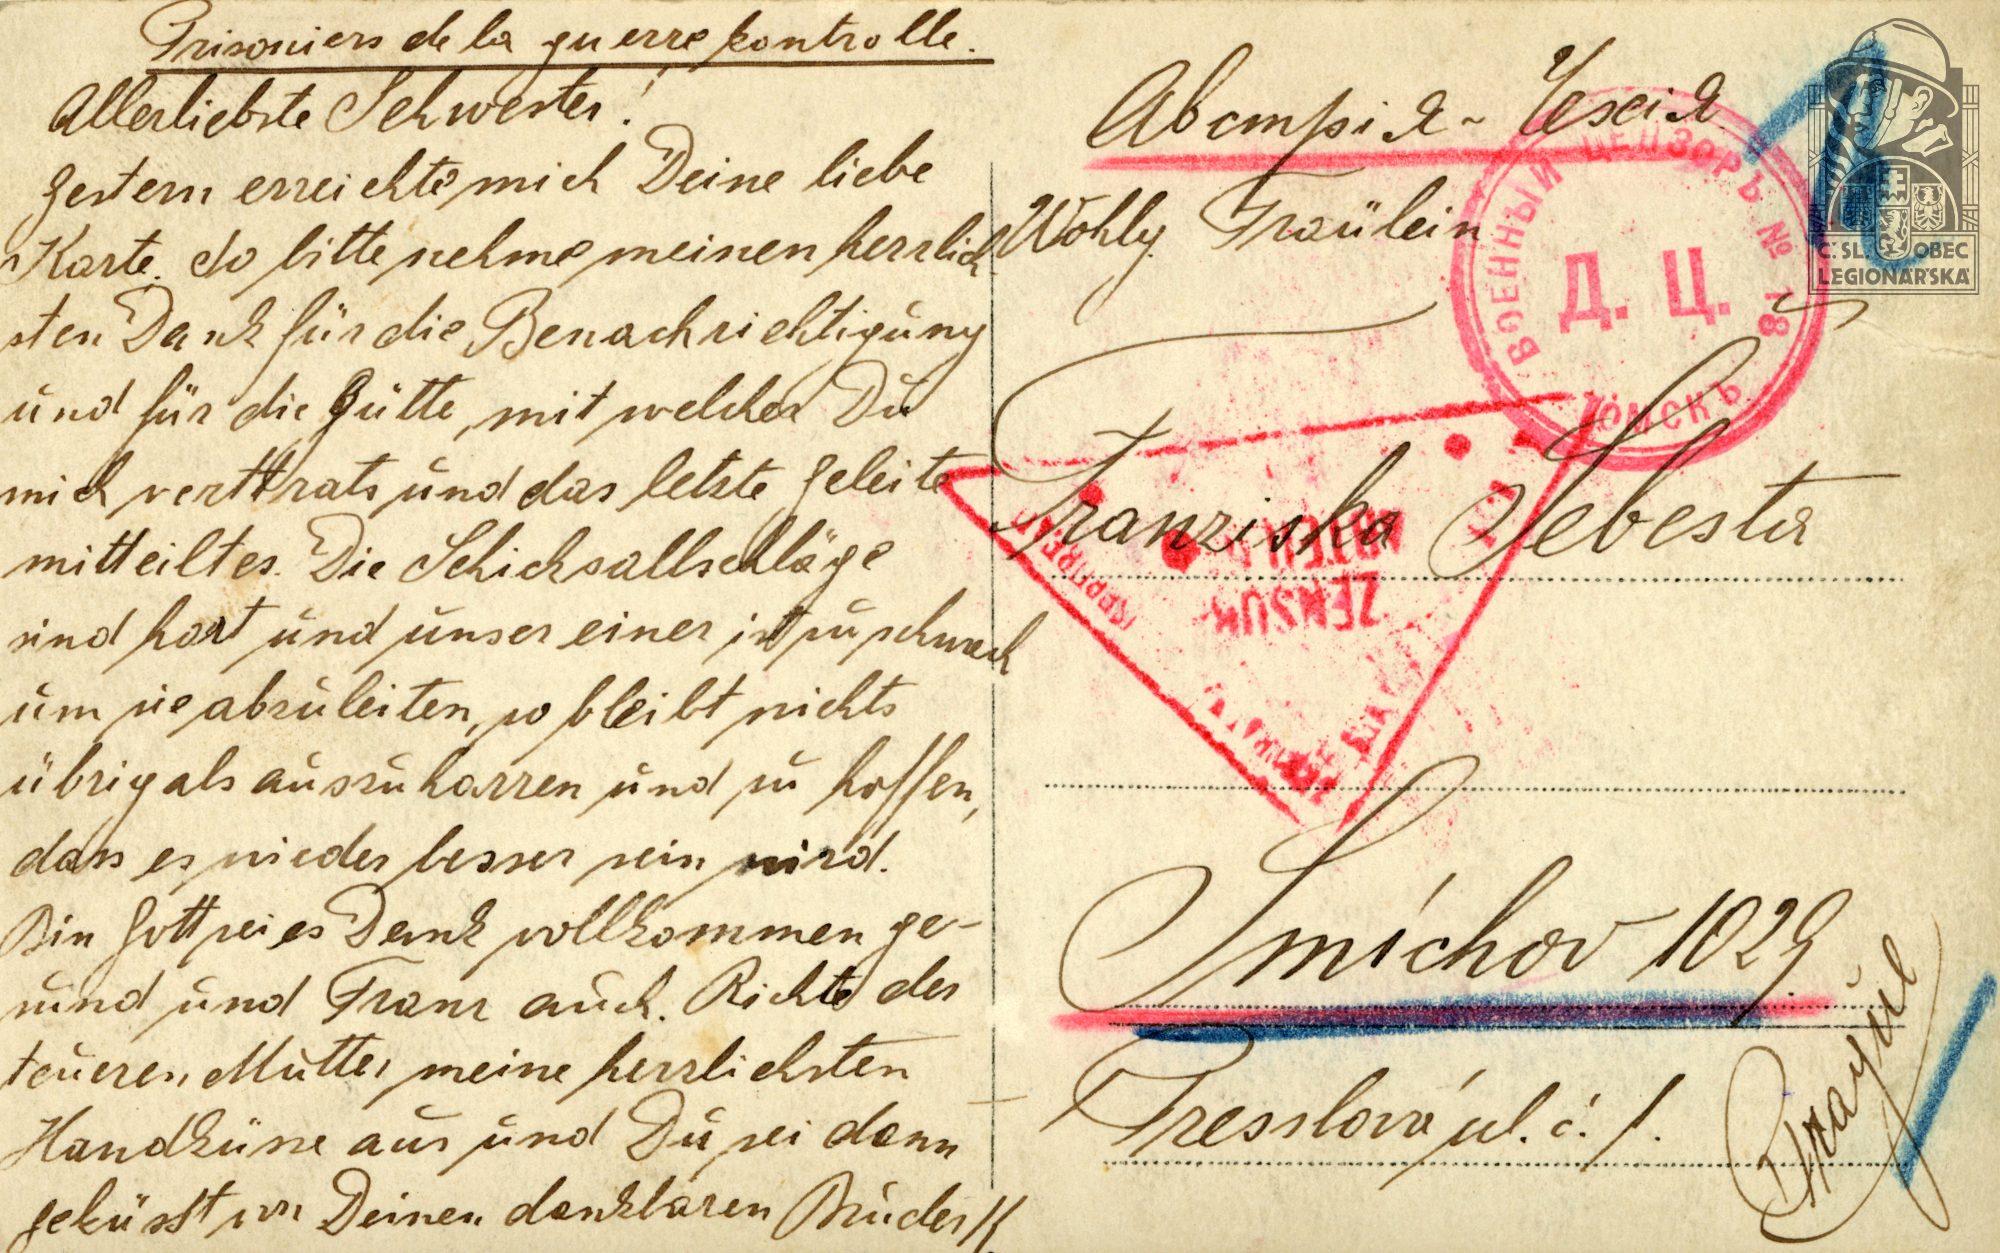 Prisoniers de la guerre kontrolle.
Allerliebste Schwester!
Gestern erreichte mich Deine liebe
Karte. So bitte nehme meinen herrlich
sten Dank für die Benachrichtigung
und für die Gütte, mit welcher Du
mich verttrats und das letzte Geleite
mitteiltes. Die Schicksallschläge
sind hart und unser einer ist zu schwach
um sie abzuleiten, so bleibt nichts
übrig als auszuharren und zu hoffen,
dass es wieder besser sein wird.
Bin Gott sei es Dank vollkommen ge-
sund und Franz auch. Richte der
teueren Mutter meine herrlichsten
Handküsse aus und Du sei dann
geküsst von Deinen dankbaren Bruder K.
Австрія - Чехія
Wohlg. Fraülein
Franziska Sebesta
Smíchov 1029
Presslova ul. č. 1.
Prague
ВОЕННЫЙ ЦЕНЗОРЪ № 18
Д. Ц.
ТОМСКЪ
ZENSUR
Č. SL. OBEC
LEGIONÁŘSKÁ